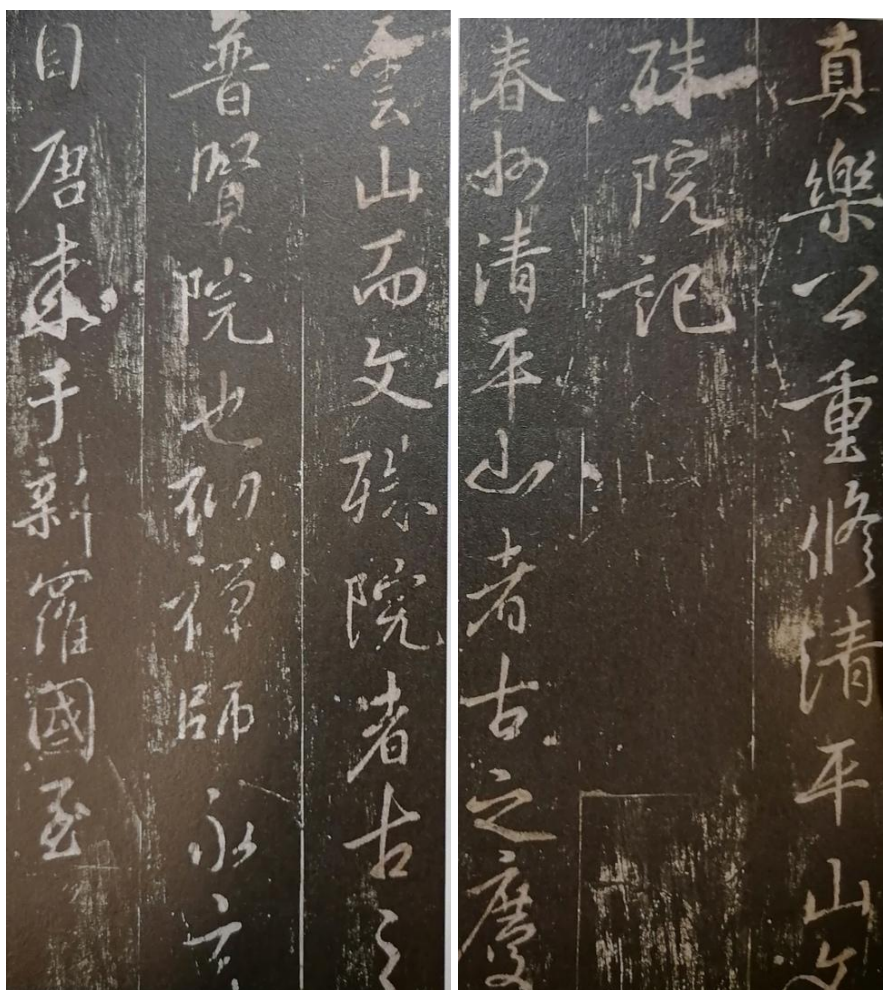 真樂公重修清平山文
殊院記
春州清平山者古之慶
雲山而文殊院者古之
普賢院也初禪師永玄
自唐來于新羅國至